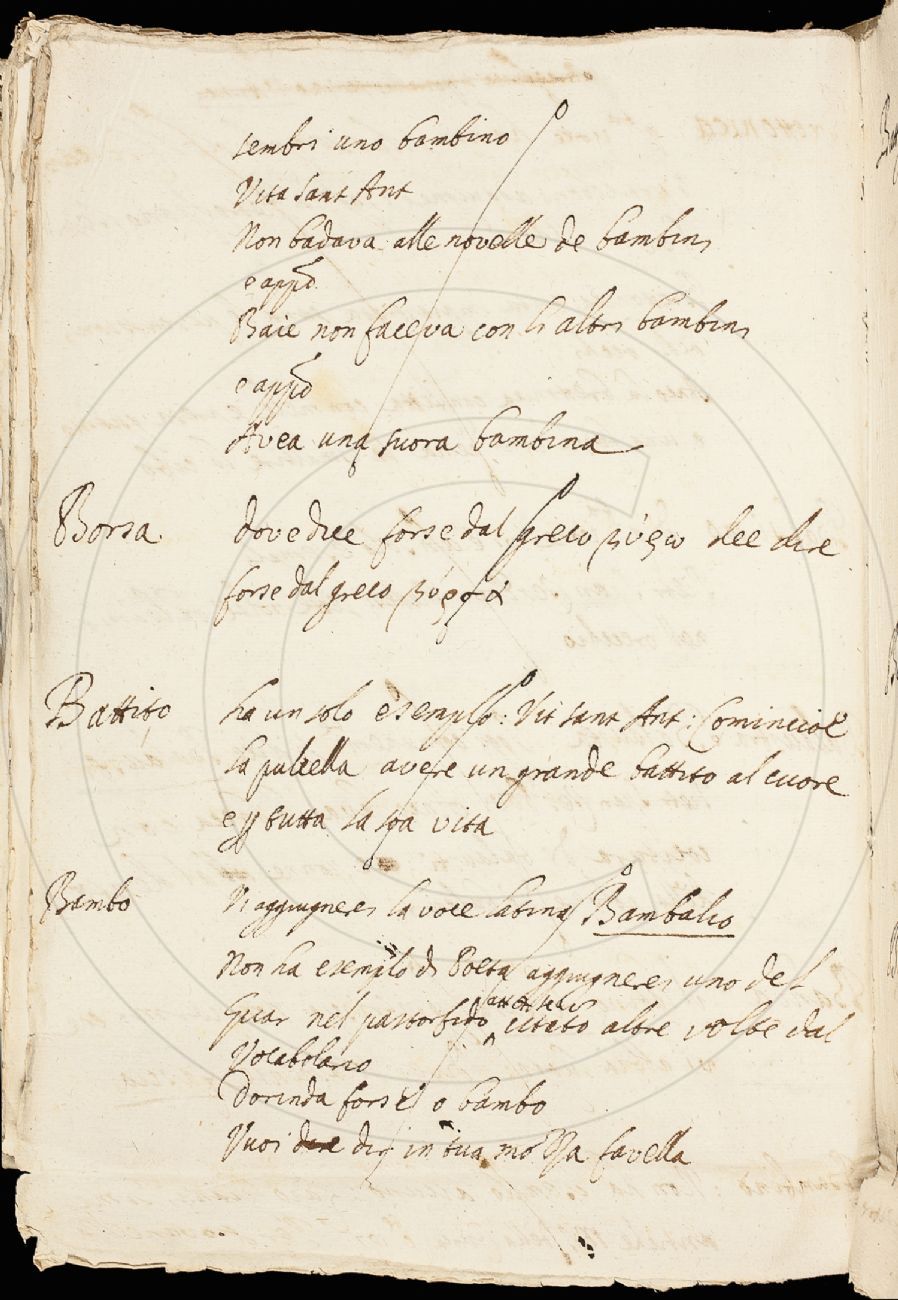 sembri uno bambino
Vita Sant Ant
Non badava alle novelle de bambini
e appo
Baie non faceva con li altri bambini
e appo
Avea una suora bambina
Borsa dove dice forse dal greco βύρσω dee dire
forse dal greco βύρσα
Battito ha un solo esemplo: Vit Sant Ant: Cominciòe
la pulcella avere un grande battito al cuore
e p tutta la spa vita
Bambo Vi aggiugnerei la voce latina Bambalio
Non ha esemplo di Poeta aggiugnerei uno del
Guar nel pastorfido citato altre volte dal
Vocabolario
Dorinda forse o bambo
Vuoi dir in tua mozza favella